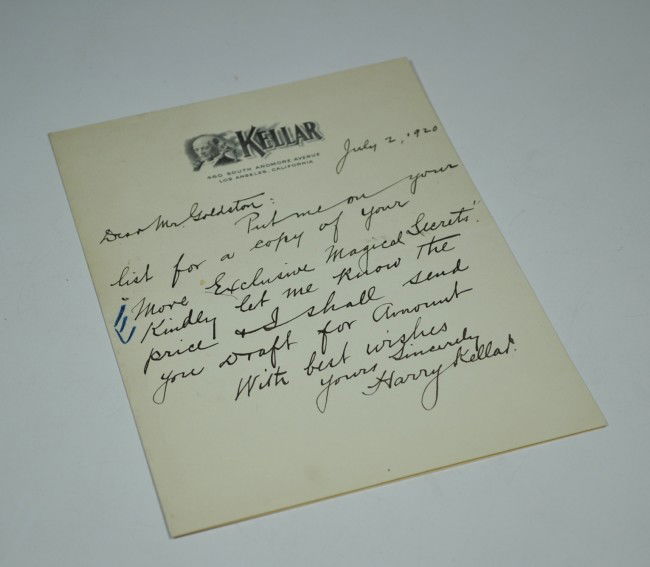 KELLAR
460 SOUTH ARDMORE AVENUE
LOS ANGELES, CALIFORNIA
July 2, 1920
Dear Mr. Goldston:
Put me on your
list for a copy of your
"More Exclusive Magical Secrets".
Kindly let me know the
price & I shall send
you Draft for Amount
With best wishes
yours Sincerely
Harry Kellar.